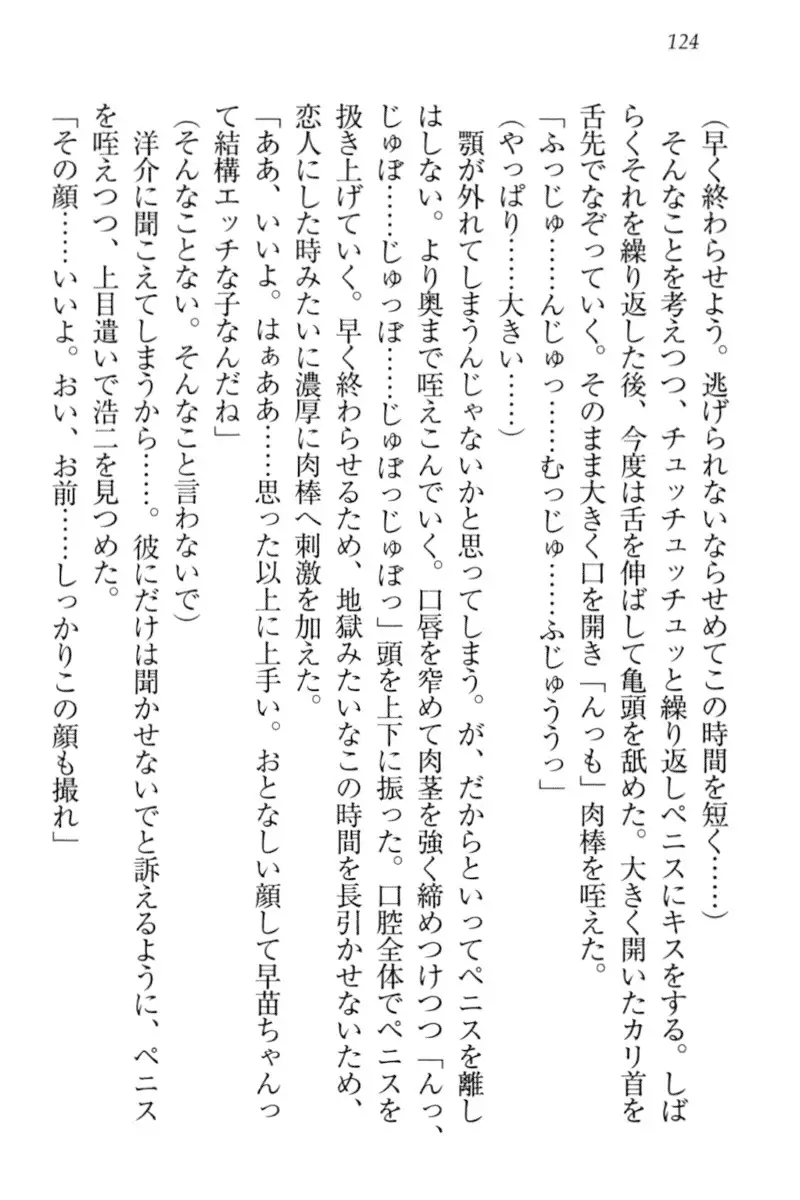 124
(早く終わらせよう。逃げられないならせめてこの時間を短く……)
そんなことを考えつつ、チュッチュッチュッと繰り返しペニスにキスをする。しば
らくそれを繰り返した後、今度は舌を伸ばして亀頭を舐めた。大きく開いたカリ首を
舌先でなぞっていく。そのまま大きく口を開き「んっも」肉棒を咥えた。
「ふっじゅ……んじゅっ……むっじゅ……ふじゅううっ」
(やっぱり……大きい……)
顎が外れてしまうんじゃないかと思ってしまう。が、だからといってペニスを離し
はしない。より奥まで咥えこんでいく。口唇を窄めて肉茎を強く締めつけつつ「んっ、
じゅぽ……じゅっぽ……じゅぽっじゅぽっ」頭を上下に振った。口腔全体でペニスを
扱き上げていく。早く終わらせるため、地獄みたいなこの時間を長引かせないため、
恋人にした時みたいに濃厚に肉棒へ刺激を加えた。
「ああ、いいよ。はぁああ……思った以上に上手い。おとなしい顔して早苗ちゃんっ
て結構エッチな子なんだね」
(そんなことない。そんなこと言わないで)
洋介に聞こえてしまうから……。彼にだけは聞かせないでと訴えるように、ペニス
を咥えつつ、上目遣いで浩二を見つめた。
「その顔……いいよ。おい、お前……しっかりこの顔も撮れ」